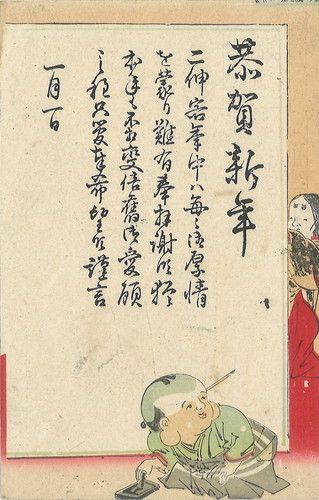 恭賀新年
二伸客年中ハ毎々御厚情
を蒙り難有奉拝謝候猶
本年も不相變倍舊御愛顧
之程只管奉希望候謹言
一月一日